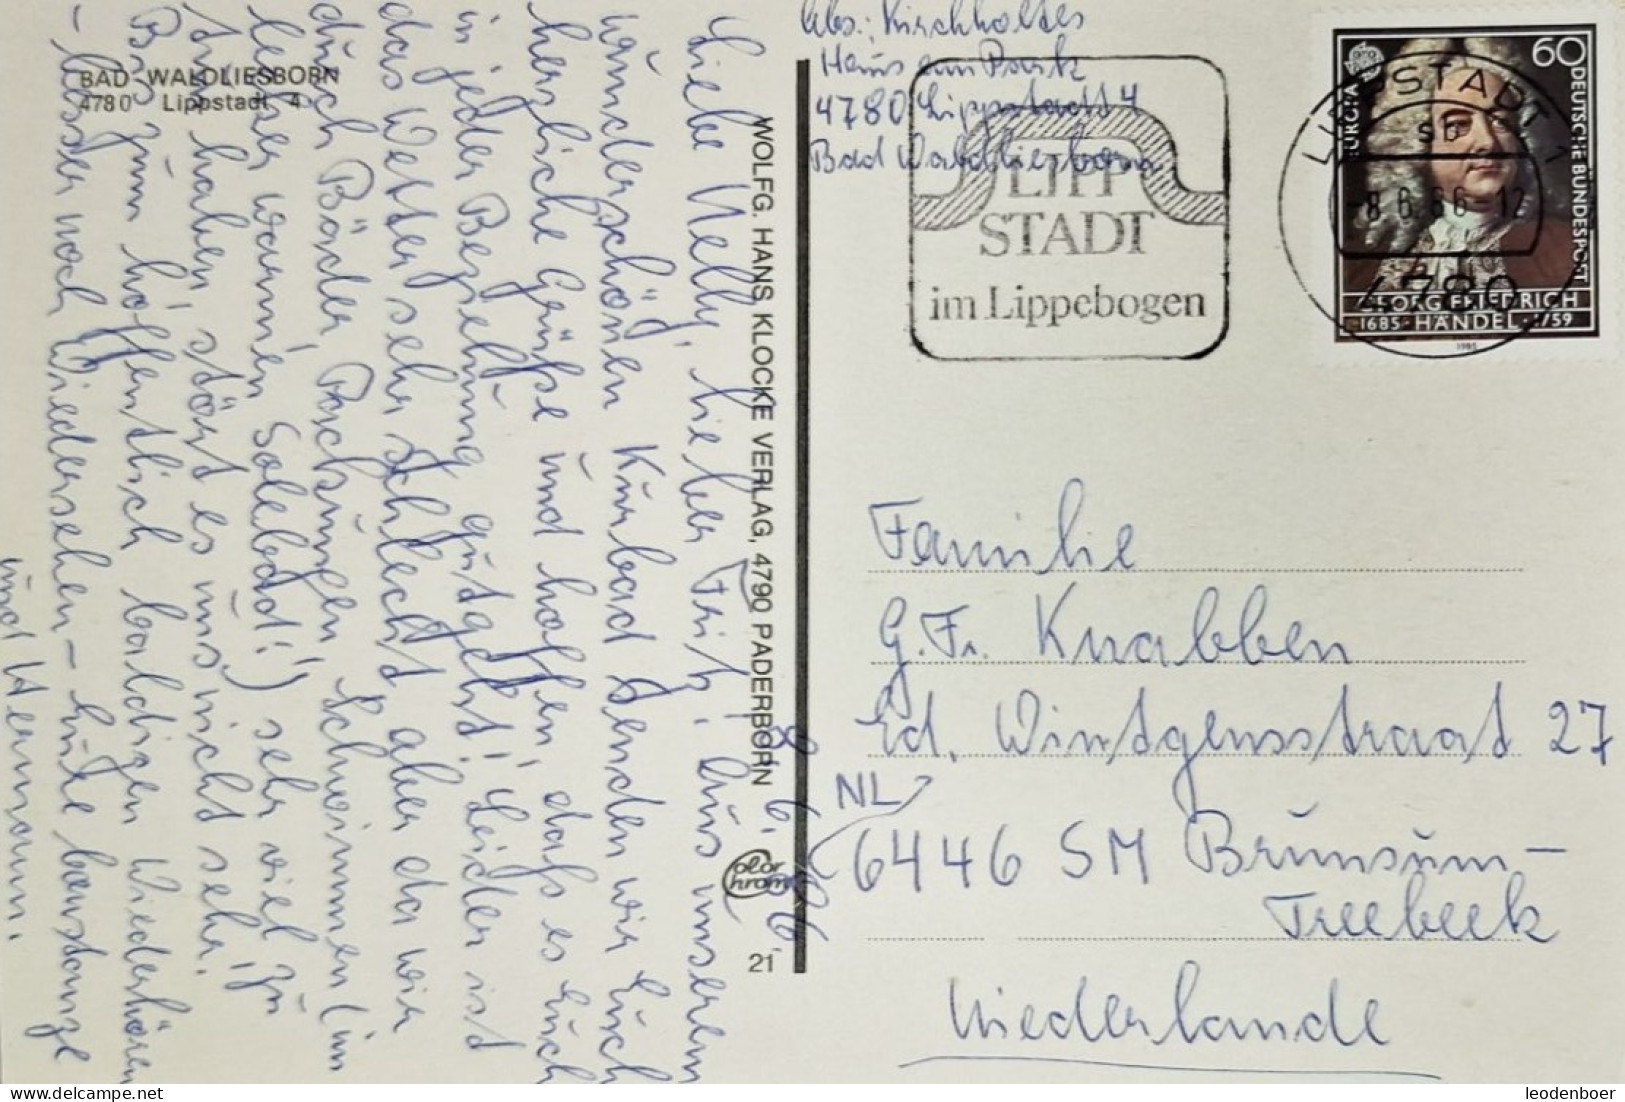 BAD WALDLIESBORN
4780 Lippstadt 4
8. 6. 86.
Liebe Nelly, lieber Fritz! Aus unserem
wunderschönen Kurbad senden wir Euch
herzliche Grüße und hoffen, daß es Euch
in jeder Beziehung gutgeht! Leider ist
das Wetter sehr schlecht, aber da wir
durch Bäder, Packungen, Schwimmen (im
warmen Solebad!!) sehr viel zu
tun haben, stört es uns nicht sehr!
Bis zum hoffentlich baldigen Wiederhören
- besser noch Wiedersehen -
und Hermann.
WOLFG. HANS KLOCKE VERLAG, 4790 PADERBORN
Color
chrom
21
Abs.: Kirchholtes
Haus am Park
4780 Lippstadt 4
Bad Waldliesborn
LIPP
STADT
im Lippebogen
LIPPSTADT 1
sb
-8.6.86.-12
4780
60
DEUTSCHE BUNDESPOST
EUROPA
GEORG FRIEDRICH
1685 · HÄNDEL · 1759
1985
Familie
G. Fr. Knabben
Ed. Wintgensstraat 27
NL
6446 SM Brunsum-
Treebeek
Niederlande
leodenboer